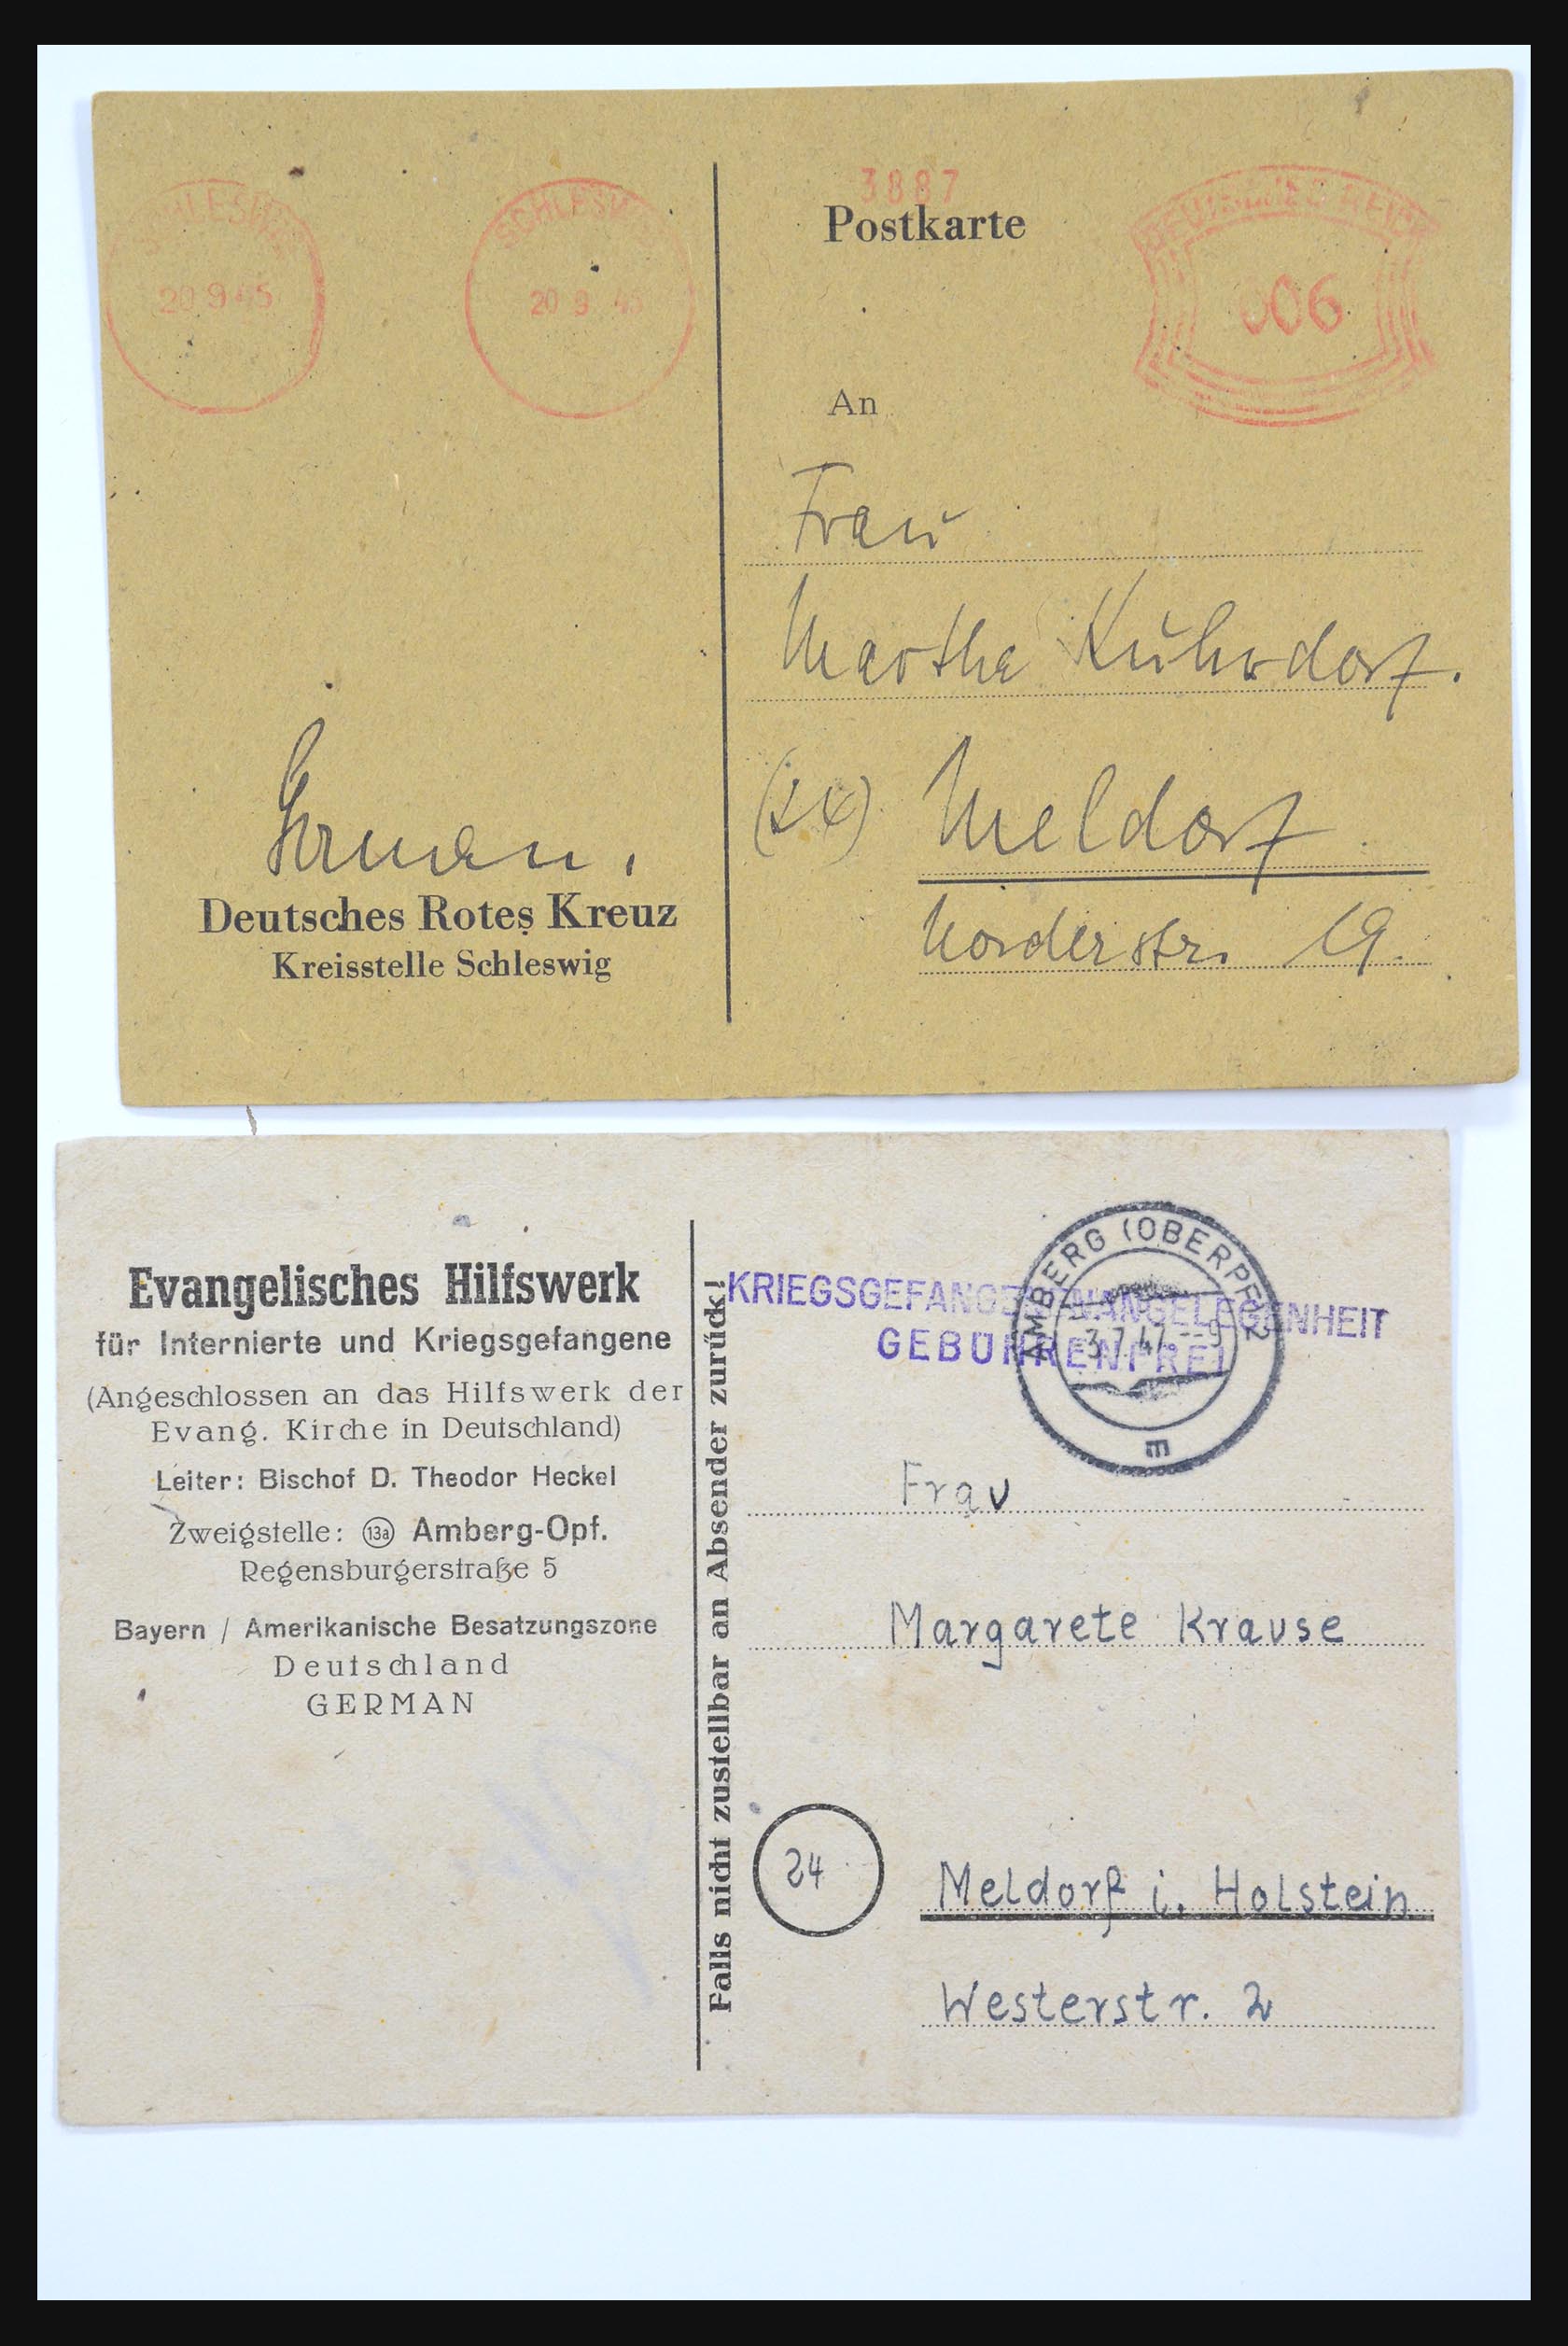 SCHLESW
20.9.45
SCHLESW
20 9 45
3887
Postkarte
DEUTSCHES REICH
006
An
Frau
Martha Kührsdorf.
(24) Meldorf
Norderstr. 19.
German.
Deutsches Rotes Kreuz
Kreisstelle Schleswig
Evangelisches Hilfswerk
für Internierte und Kriegsgefangene
(Angeschlossen an das Hilfswerk der
Evang. Kirche in Deutschland)
Leiter: Bischof D. Theodor Heckel
Zweigstelle: 13a Amberg-Opf.
Regensburgerstraße 5
Bayern / Amerikanische Besatzungszone
Deutschland
GERMAN
Falls nicht zustellbar an Absender zurück!
KRIEGSGEFANGENENANGELEGENHEIT
GEBÜHRENFREI
AMBERG (OBERPF) 2
-3.7.47.--9
m
Frau
Margarete Krause
24
Meldorf i. Holstein
Westerstr. 2